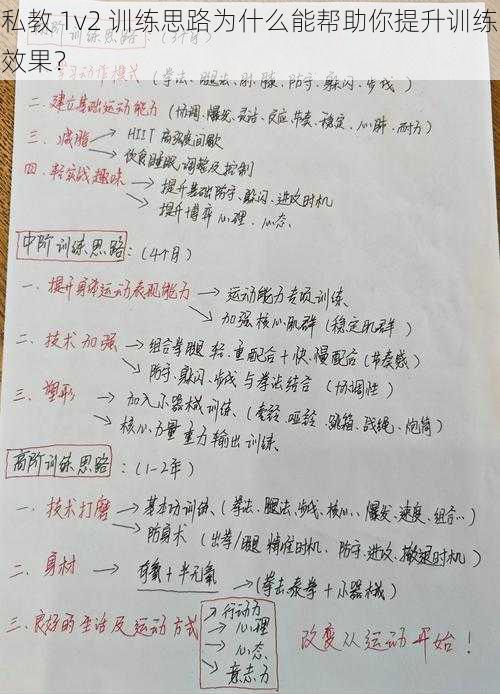 私教 1v2 训练思路为什么能帮助你提升训练
效果？
训练思路：(3个月)
学习动作模式（拳法、腿法、肘、膝、防守、躲闪、步伐）
二、建立基础运动能力（协调、爆发、灵活、反应、节奏、稳定、心肺、耐力）
三、减脂 → HIIT 高强度间歇
→ 饮食睡眠、调整及控制
四、轻实战趣味 → 提升基础防守、躲闪、进攻时机
→ 提升博弈心理、心态、
中阶训练思路：(4个月)
一、提升身体运动表现能力 → 运动能力专项训练、
→ 加强核心肌群（稳定肌群）
二、技术加强 → 组合拳腿 轻、重配合＋快、慢配合（节奏感）
→ 防守、躲闪、步伐与拳法结合（协调性）
三、塑形 → 加入小器械训练、（壶铃 哑铃、跳箱、战绳、炮筒）
→ 核心力量 重力输出训练、
高阶训练思路：(1-2年)
一、技术打磨 → 基本功训练、（拳法、腿法、步伐、核心、爆发、速度、组合…）
→ 防身术（出拳/腿 精准时机、防守、进攻、撤退时机）
二、身材 → 有氧＋半无氧 →（拳击泰拳＋小器械）
三、良好的生活及运动方式 → 行动力
→ 心理
→ 心态、
→ 意志力
改变从运动开始！